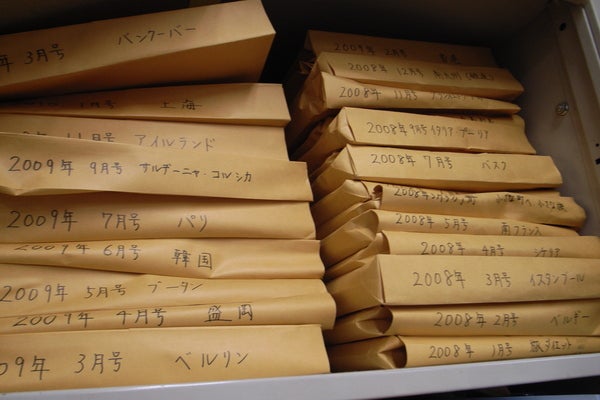 年 3月号 バンクーバー
1月号 上海
年 11月号 アイルランド
2009年 9月号 サルデーニャ・コルシカ
2009年 7月号 パリ
2009年 6月号 韓国
2009年 5月号 ブータン
2009年 4月号 盛岡
09年 3月号 ベルリン
2009年 2月号
2008年 12月号
2008年 11月号
2008年 9月号 イタリア プーリア
2008年 7月号 バスク
2008年
2008年 5月号 南フランス
2008年 4月号 シケリア
2008年 3月号 イスタンブール
2008年 2月号 ベルギー
2008年 1月号 ダイエット